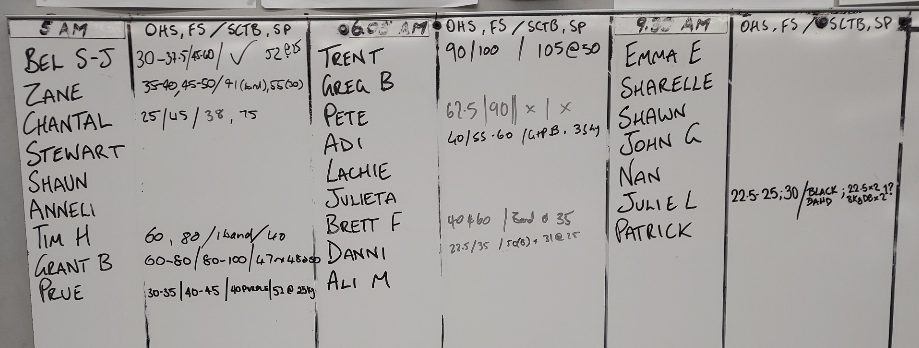 5 AM
OHS, FS / SCTB, SP
BEL S-J 30-37.5/45-60/ ✓ 52@15
ZANE 35-40, 45-50/41(band), 55(30)
CHANTAL 25/45/38, 75
STEWART
SHAUN
ANNELI
TIM H 60, 80/1 band/40
GRANT B 60-80/80-100/
PRUE 30-35/40-45/ 52@25kg
06.00 AM
OHS, FS / SCTB, SP
TRENT 90/100 / 105@50
GREG B
PETE 62.5|90|| x | x
ADI 40/55-60 / 35kg
LACHIE
JULIETA
BRETT F 40 & 60 / Band @ 35
DANNI 22.5/35 / 31@25
ALI M
9.30 AM
OHS, FS / SCTB, SP
EMMA E
SHARELLE
SHAWN
JOHN G
NAN
JULIE L 22.5-25; 30 / BLACK BAND ; 22.5x21?
PATRICK